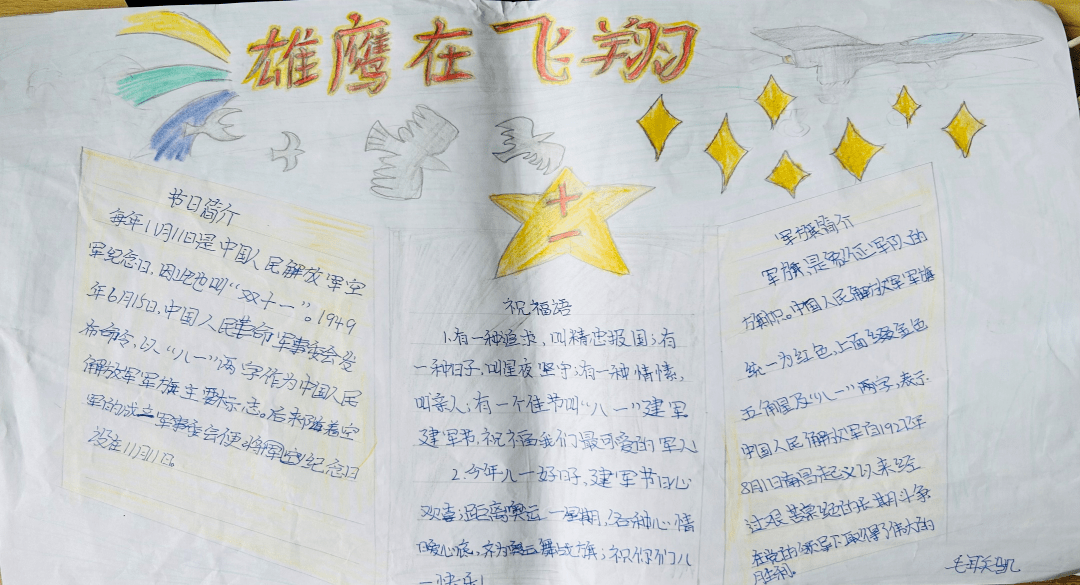 雄鹰在飞翔
节日简介
每年11月11日是中国人民解放军空
军纪念日,因此也叫“双十一”。1949
年6月15日,中国人民革命军事委会发
布命令,以“八一”两字作为中国人民
解放军军旗主要标志。后来随着空
军的成立军事委会便将军纪念日
设在11月11日。
十
一
祝福语
1.有一种追求,叫精忠报国;有
一种日子,叫星夜坚守;有一种情愫,
叫亲人;有一个佳节叫“八一”建军
建军节,祝福我们最可爱的军人
2.今年八一好日子,建军节日心
欢喜;距离奥运一星期,各种心情
暖心底,齐为奥运舞战旗;祝你们八
一快乐!
军旗简介
军旗,是象征军队的
旗帜。中国人民解放军军旗
统一为红色,上面金色
五角星及“八一”两字,表示
中国人民解放军自1927年
8月1日南昌起义以来经
过艰苦卓绝的长期斗争
在党的领导下取得了伟大的
胜利。